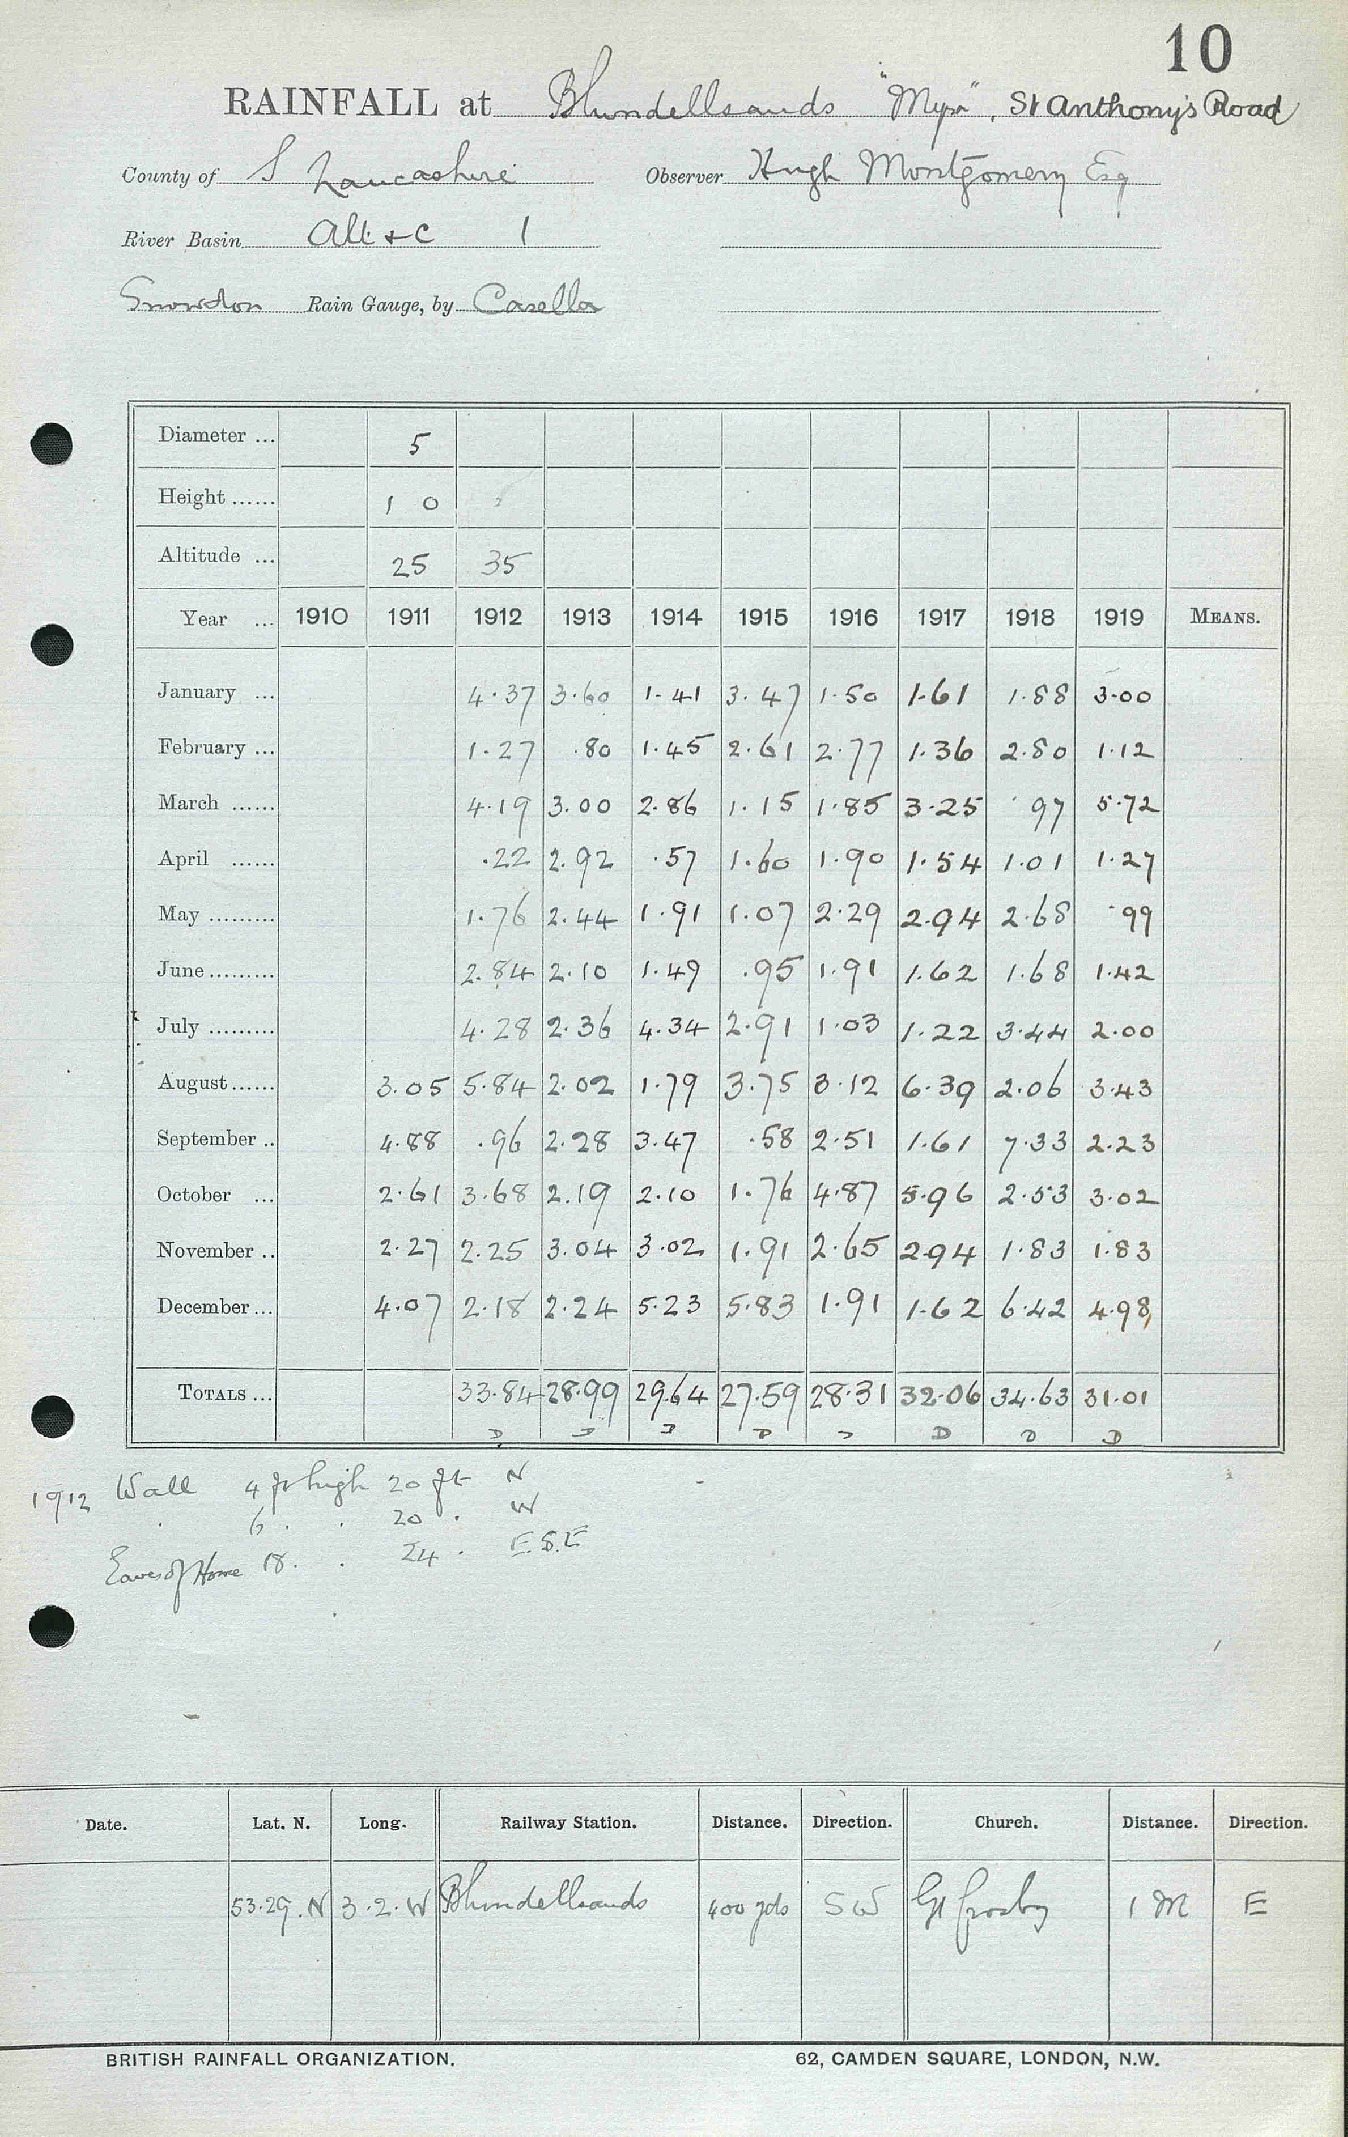 10
RAINFALL at Blundellsands "Myr", St Anthony's Road
County of S Lancashire Observer Hugh Montgomery Esq
River Basin Alt & c 1
Snowdon Rain Gauge, by Casella
Diameter ... 5
Height ...... 1 0
Altitude ... 25 35
Year ... 1910 1911 1912 1913 1914 1915 1916 1917 1918 1919 MEANS.
January ... 4.37 3.60 1.41 3.47 1.50 1.61 1.88 3.00
February ... 1.27 .80 1.45 2.61 2.77 1.36 2.80 1.12
March ...... 4.19 3.00 2.86 1.15 1.85 3.25 .97 5.72
April ...... .22 2.92 .57 1.60 1.90 1.54 1.01 1.27
May ......... 1.76 2.44 1.91 1.07 2.29 2.94 2.68 .99
June ......... 2.84 2.10 1.49 .95 1.91 1.62 1.68 1.42
July ......... 4.28 2.36 4.34 2.91 1.03 1.22 3.44 2.00
August ...... 3.05 5.84 2.02 1.79 3.75 3.12 6.39 2.06 3.43
September .. 4.88 .96 2.28 3.47 .58 2.51 1.61 7.33 2.23
October ... 2.61 3.68 2.19 2.10 1.76 4.87 5.96 2.53 3.02
November .. 2.27 2.25 3.04 3.02 1.91 2.65 2.94 1.83 1.83
December ... 4.07 2.18 2.24 5.23 5.83 1.91 1.62 6.42 4.98
TOTALS ... 33.84 28.99 29.64 27.59 28.31 32.06 34.63 31.01
D D D D D D D D
1912 Wall 4 ft high 20 ft N
. 6 . . 20 . W
Eaves of Home 18 . . 24 . E.S.E
Date. Lat. N. Long. Railway Station. Distance. Direction. Church. Distance. Direction.
53.29.N 3.2.W Blundellsands 400 yds SW Gt Crosby 1 M E
BRITISH RAINFALL ORGANIZATION. 62, CAMDEN SQUARE, LONDON, N.W.